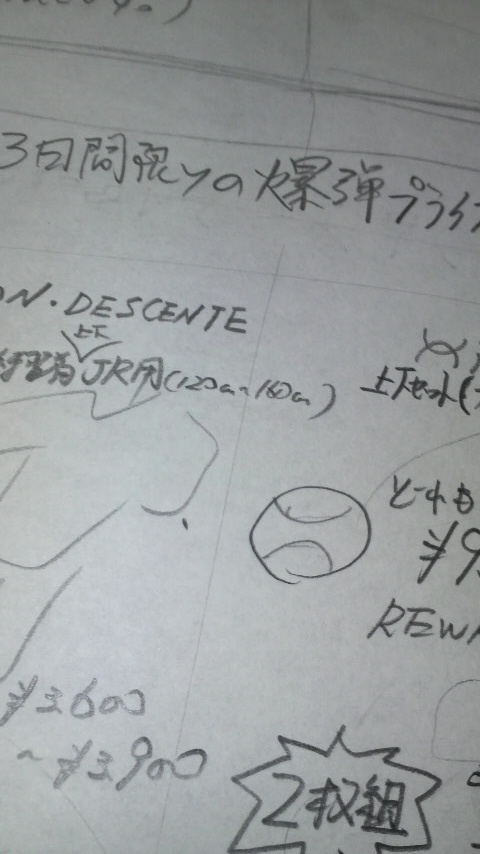 3日間限りの爆弾プライ
ON・DESCENTE
上下
JR用(120cm~160cm)
上下セット(
どれも
¥9
REW
¥3,600
~¥3,900
2枚組